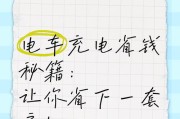 电车充电省钱
秘籍：
让你省下一套